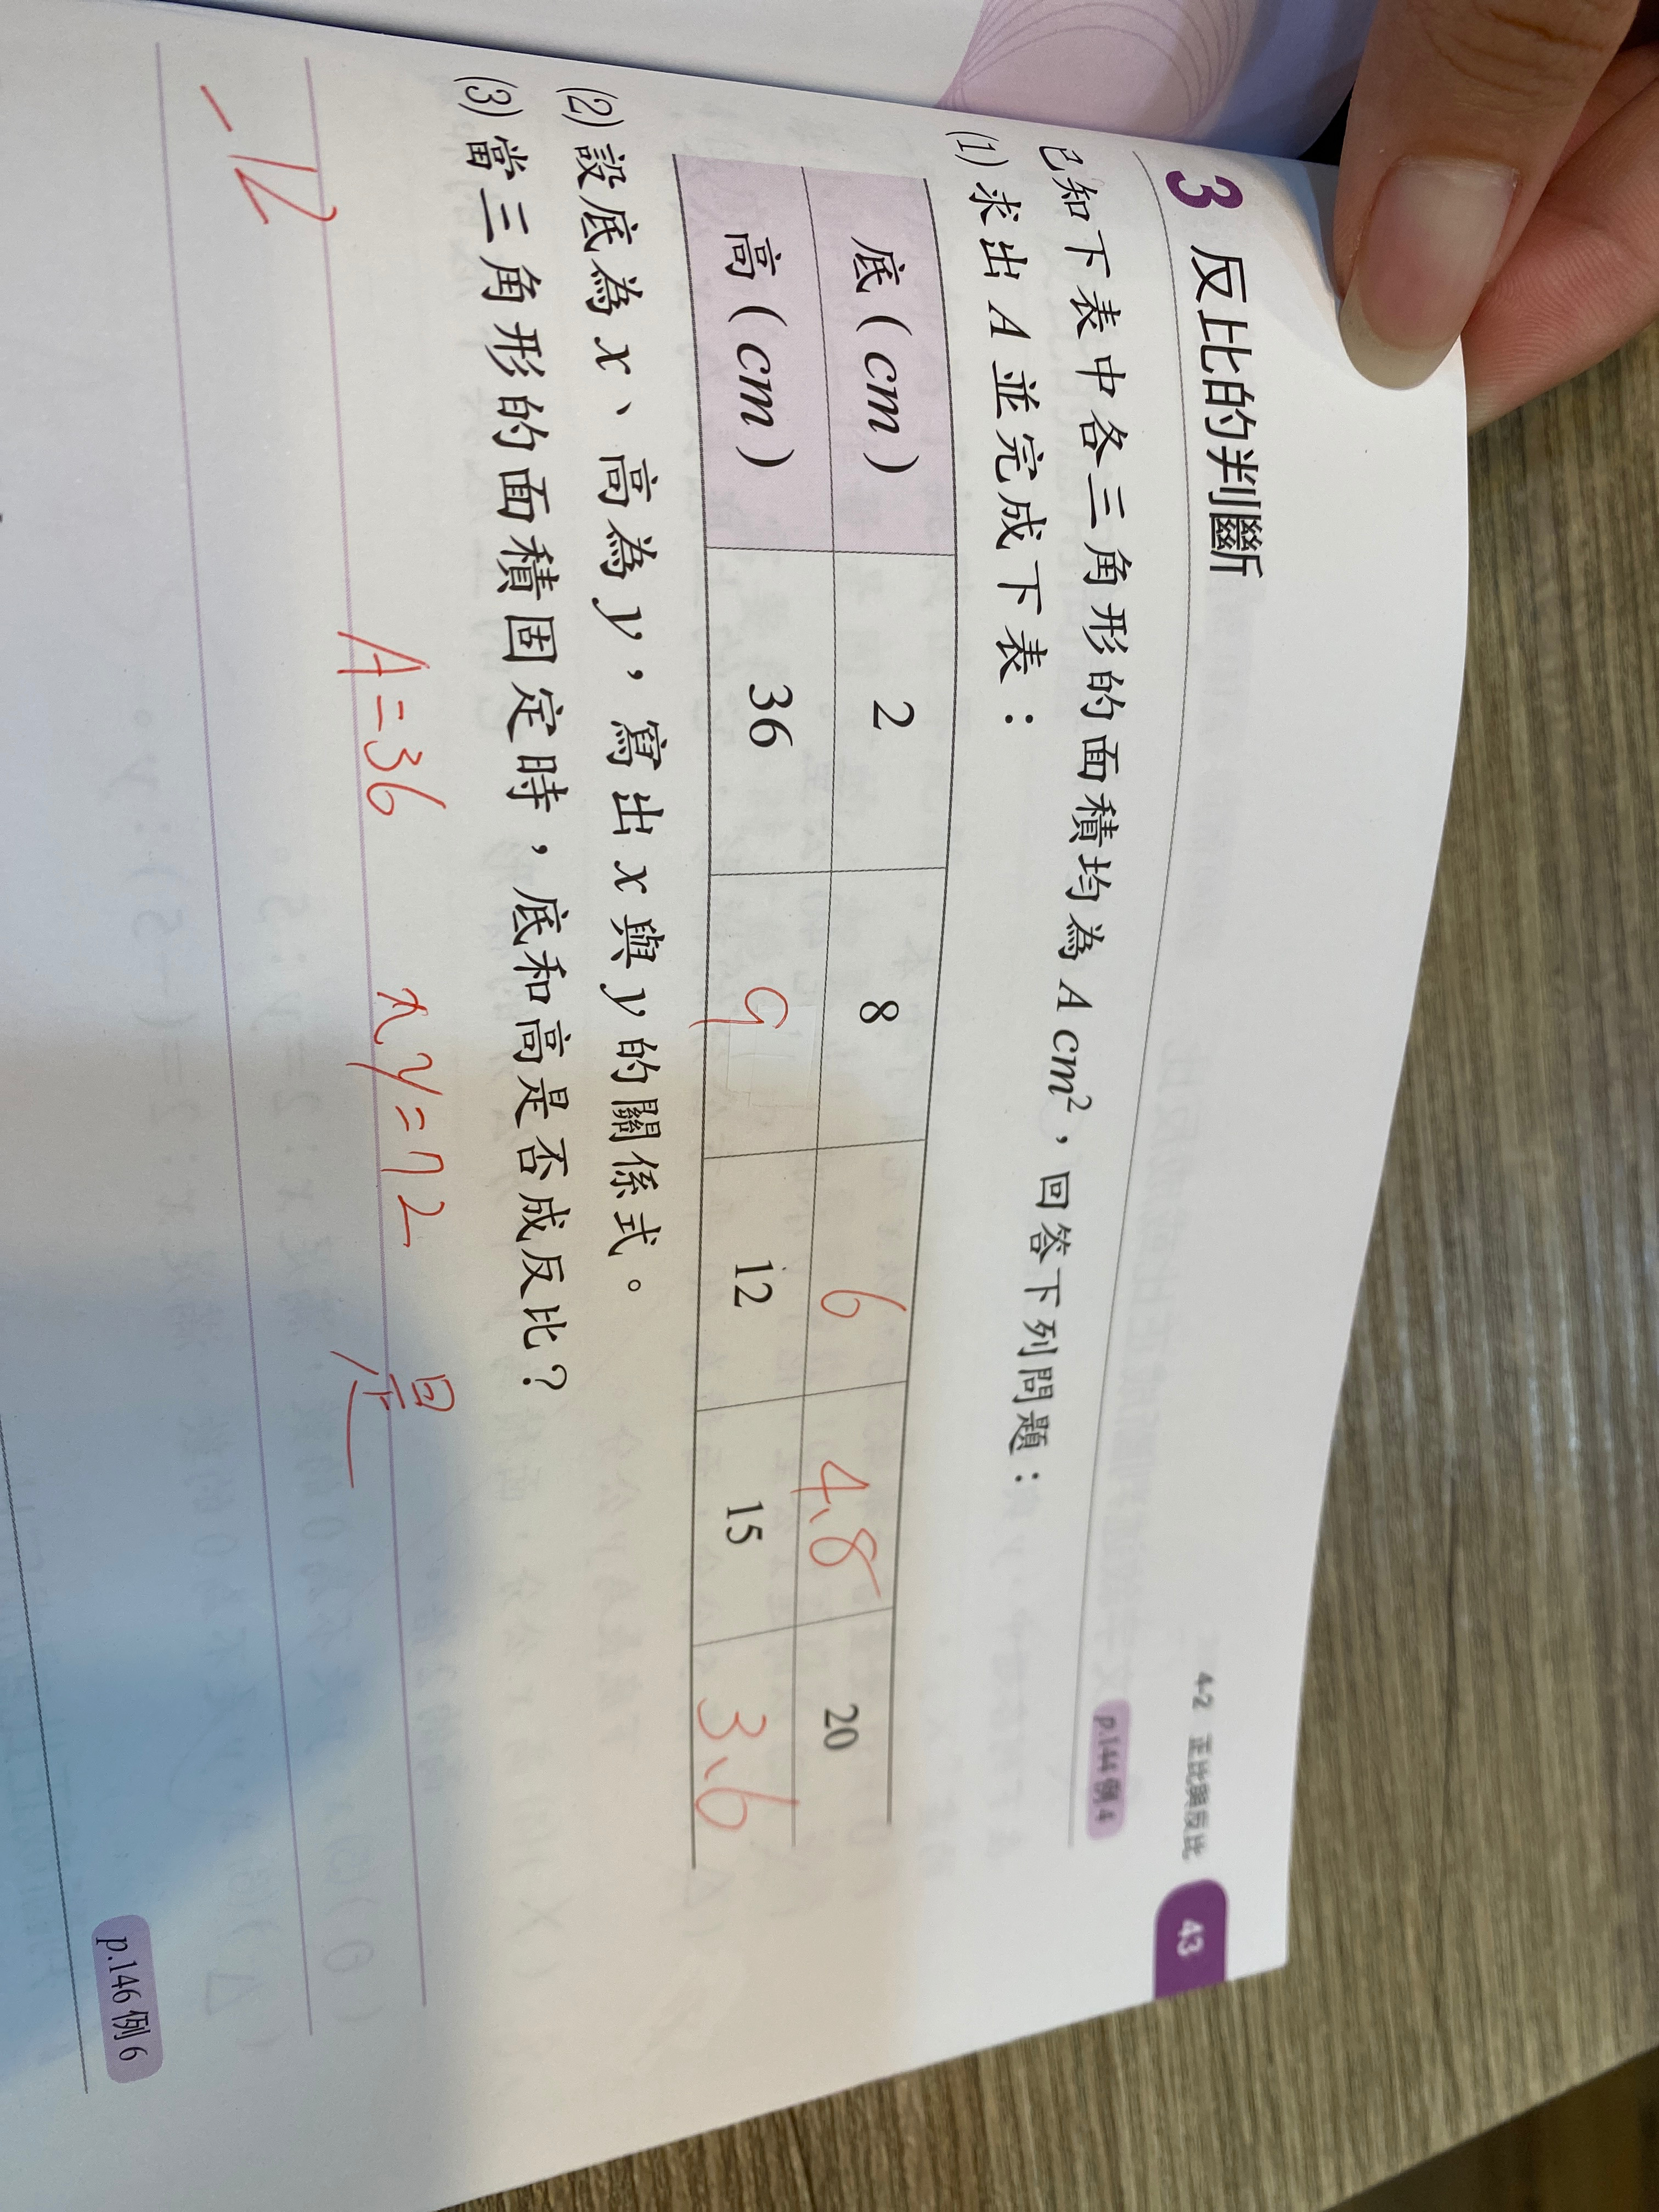 4-2 正比與反比 43
3 反比的判斷
p.144 例 4
已知下表中各三角形的面積均為 A cm²，回答下列問題：
(1) 求出 A 並完成下表：
底 ( cm ) 2 8 6 4.8 20
高 ( cm ) 36 9 12 15 3.6
(2) 設底為 x、高為 y，寫出 x 與 y 的關係式。
(3) 當三角形的面積固定時，底和高是否成反比？
A=36 xy=72 是
-12
p.146 例 6